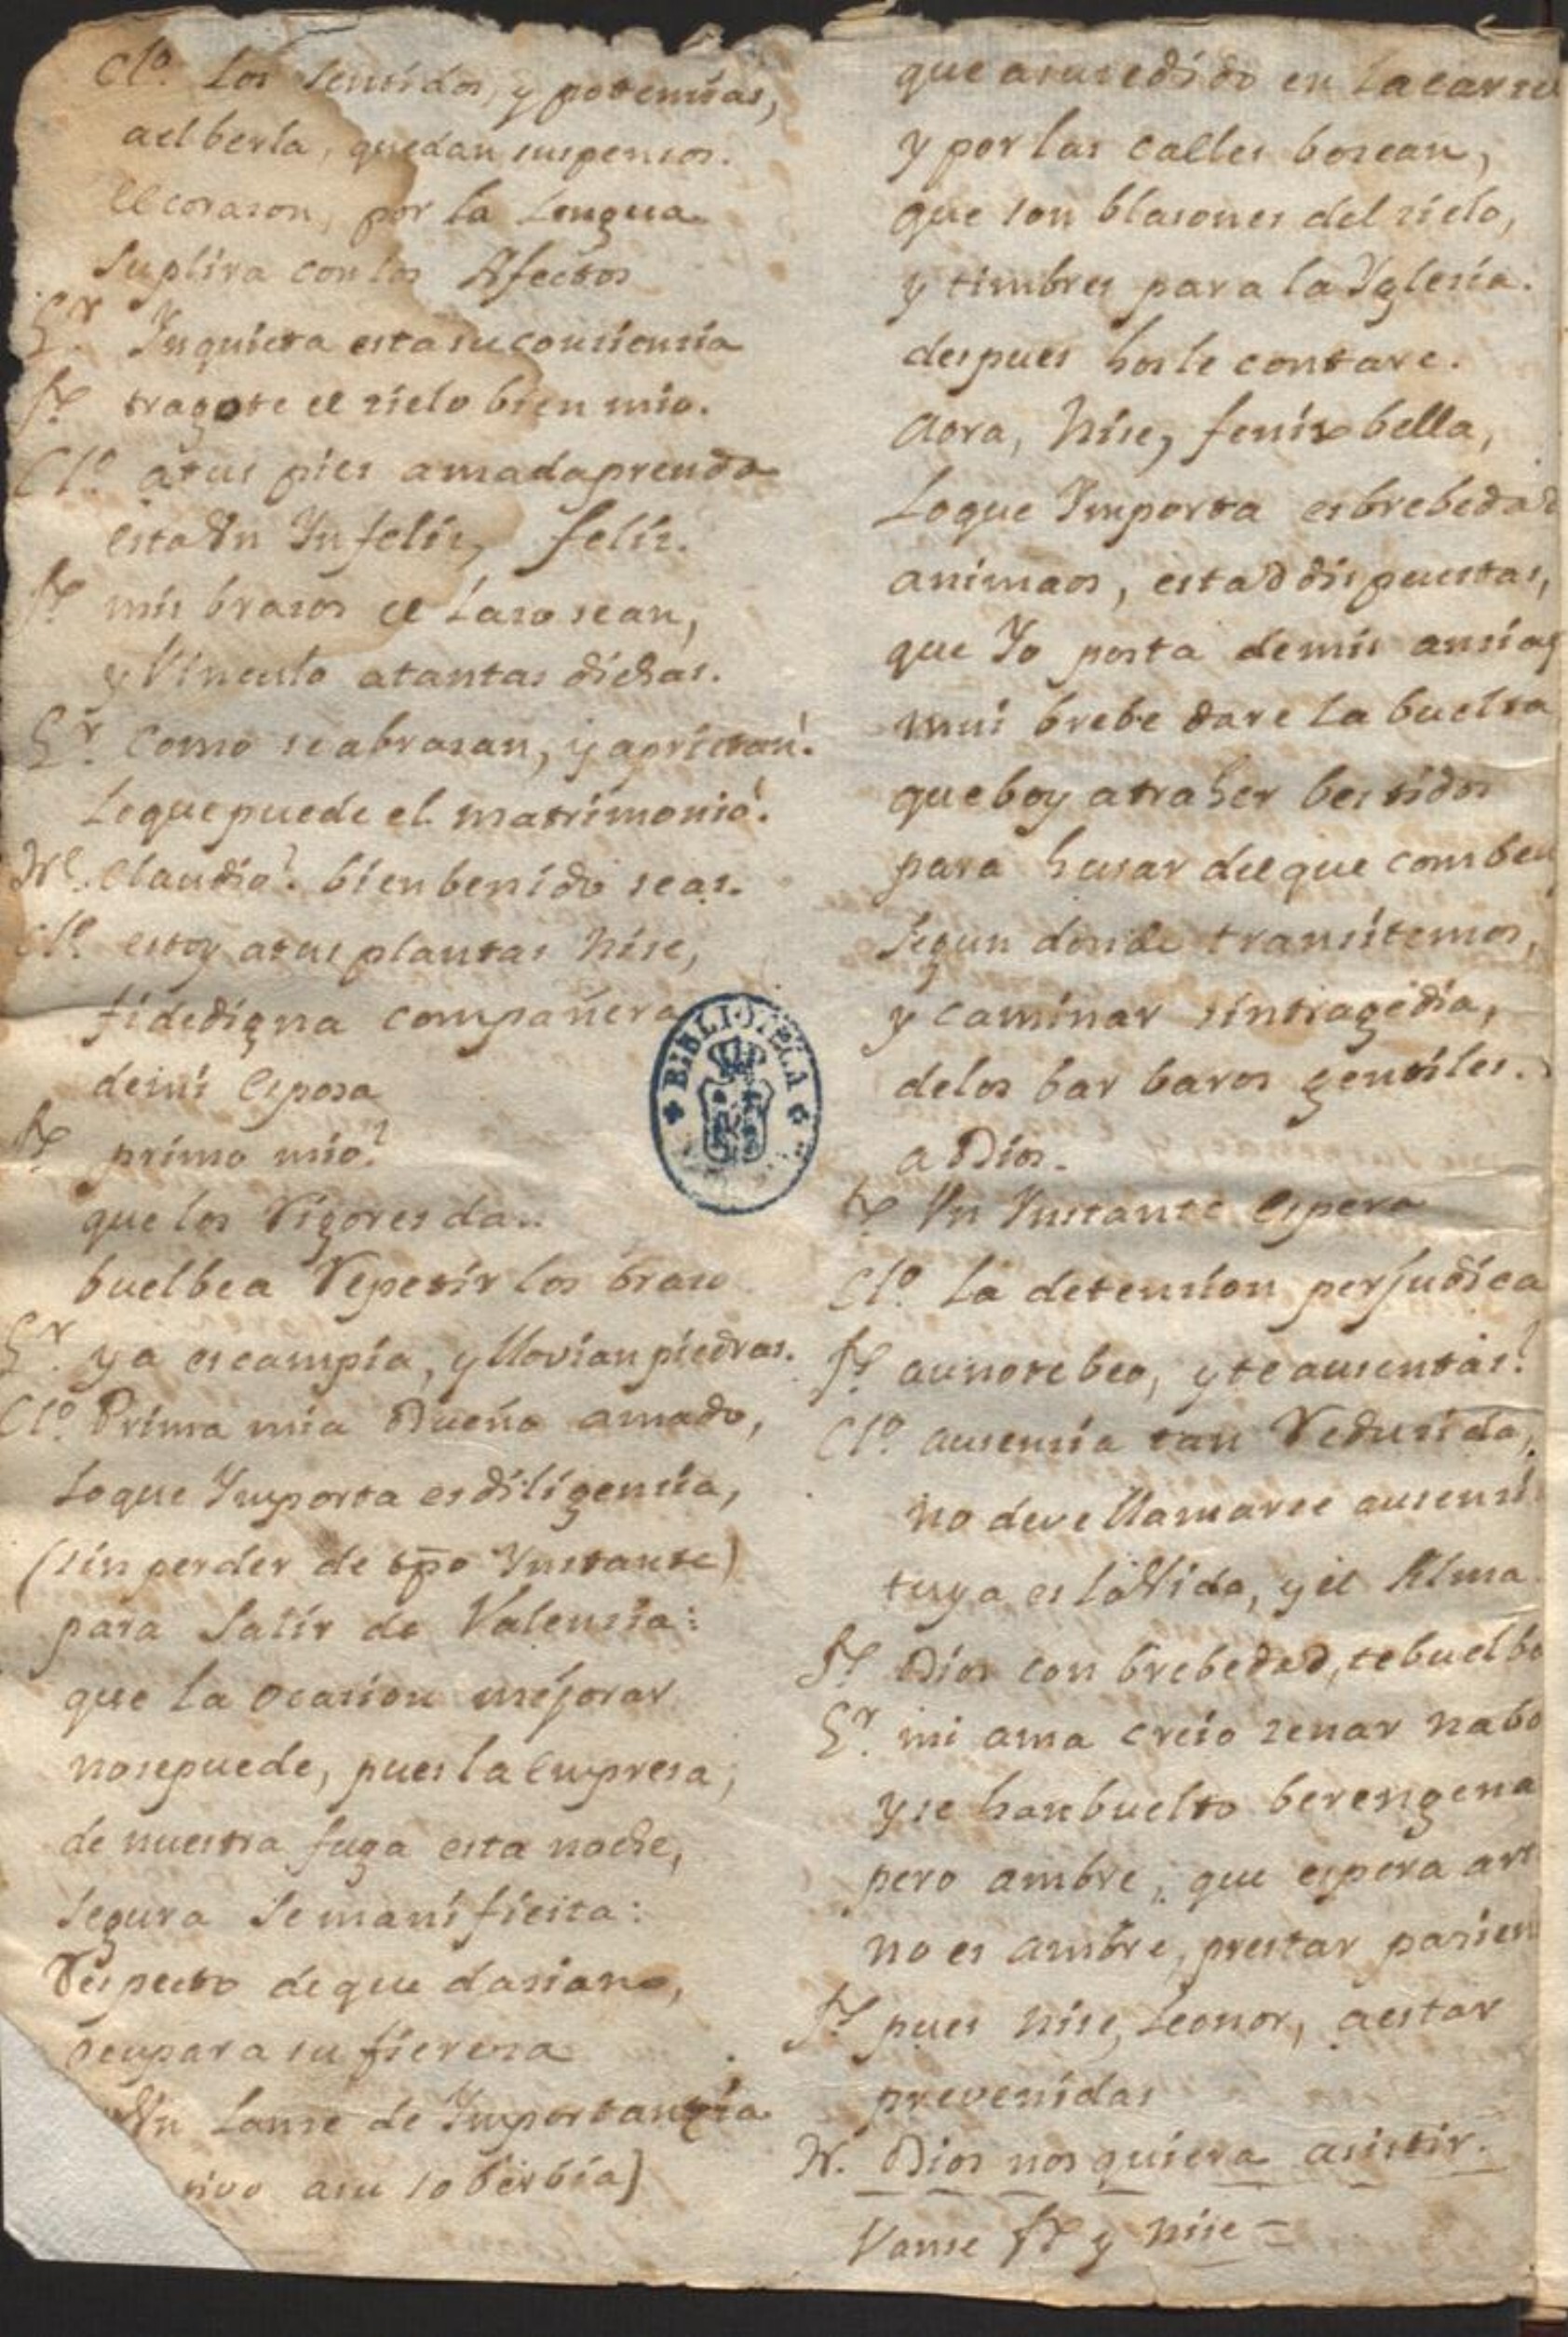 Clº. Los sentidos, y potensias,
ael berla, quedan suspensos.
el corason, por la Lengua
suplira con los Afectos
Gr. Ynquieta esta su consiensia
fl. tragote el sielo bien mio.
Clº. a tus pies amada prenda
esta Vn Ynfelis, felis.
fl. mis brasos el Laso sean,
y Vinculo a tantas dichas.
Gr. Como se abrasan, y aprietan!
Lo que puede el matrimonio!
Ne. Claudio? bien benido seas.
Clº. estoy a tus plantas Nise,
fidedigna compañera
de mi esposa
fl. primo mio?
que los Rigores dan
buelbe a Repetir los braso
Gr. ya escampia, y llovian piedras.
Clº. Prima mia Dueño amado,
Lo que Ymporta es diligensia,
(sin perder de tpo Ynstante)
para Salir de Valensia:
que la ocasion mejorar
no se puede, pues la empresa,
de nuestra fuga esta noche,
segura se manifiesta:
Respecto de que dasiano,
ocupara su fieresa
Vn Lanse de Ymportansia
sivo a su soberbia)
que a susedido en la carsel
y por las calles bosean,
que son blasones del sielo,
y timbres para la Yglesia.
despues hos le contare.
Aora, Nise, fenix bella,
Lo que Ymporta es brebedad
animaos, estad dispuestas,
que Yo posta de mis ansias
mui brebe dare la buelta
que boy a traher bestidos
para husar del que comben
segun donde transitemos,
y caminar sin tragedia,
de los barbaros gentiles.
a Dios.
fl. Vn Ynstante espera
Clº. La detension perjudica
fl. aun no te beo, y te ausentas?
Clº. ausensia tan Redusida,
no deve llamarse ausensi
tuya es la Vida, y el Alma
fl. Dios con brebedad, te buelba
Gr. mi ama creio senar nabo
y se han buelto berengena
pero ambre, que espera art
no es ambre, prestar pasien
fl. pues Nise, Leonor, a estar
prevenidas
N. Dios nos quiera asistir.
Vanse fl. y Nise =
BIBLIOTECA